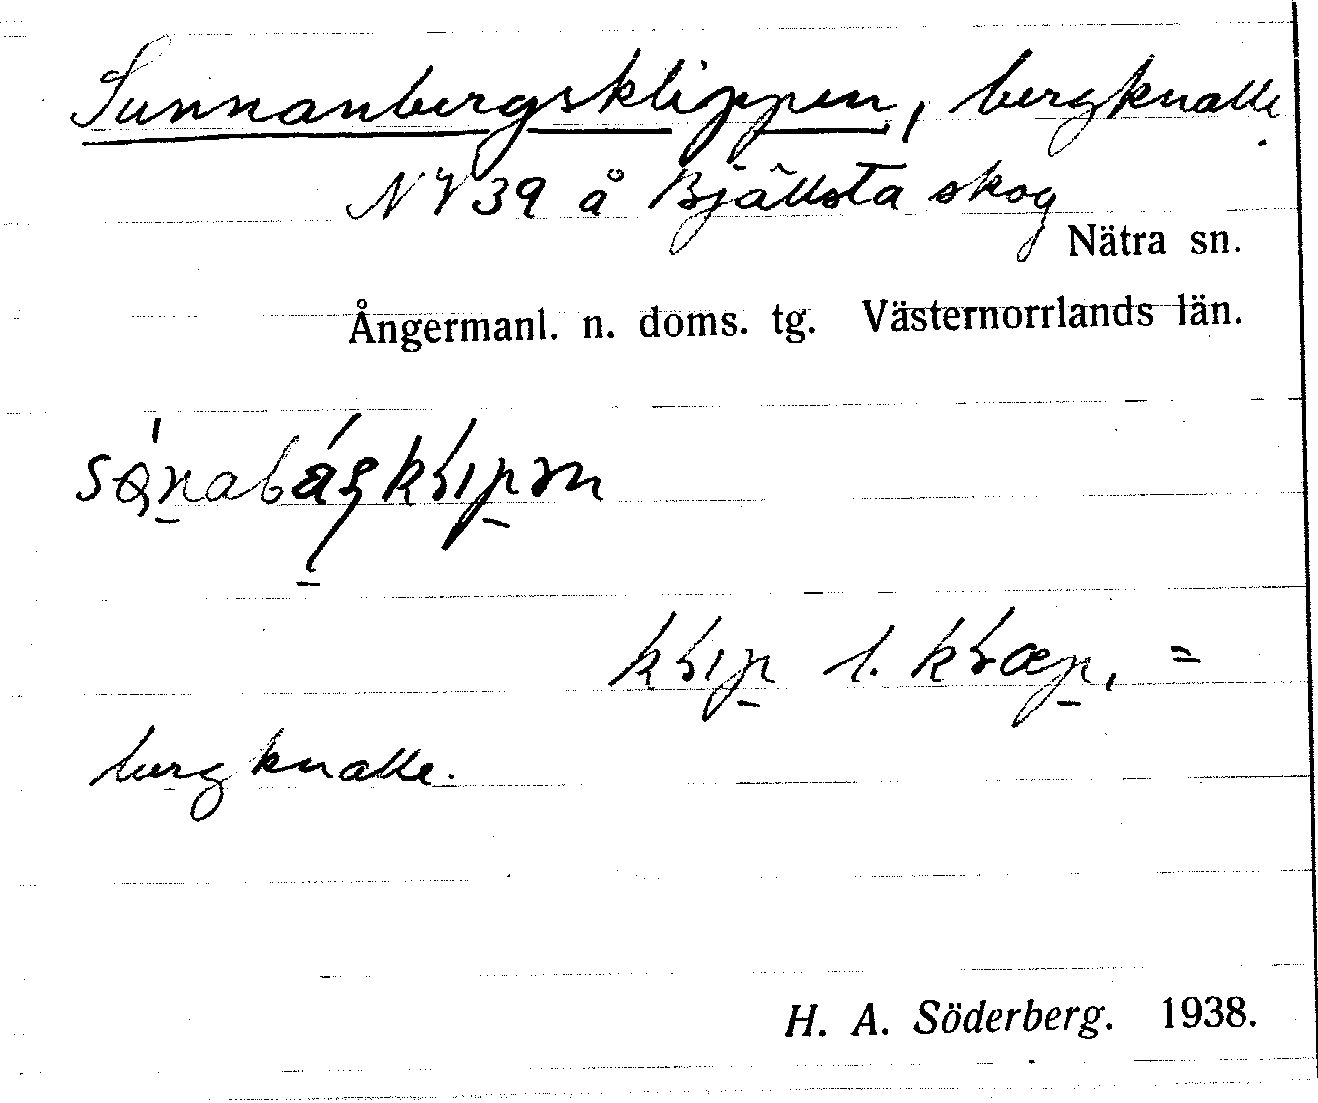 Sunnanbergsklippen, bergknalle.
NV39 å Bjällsta skog
Nätra sn.
Ångermanl. n. doms. tg. Västernorrlands län.
l. =
bergknalle.
H. A. Söderberg. 1938.